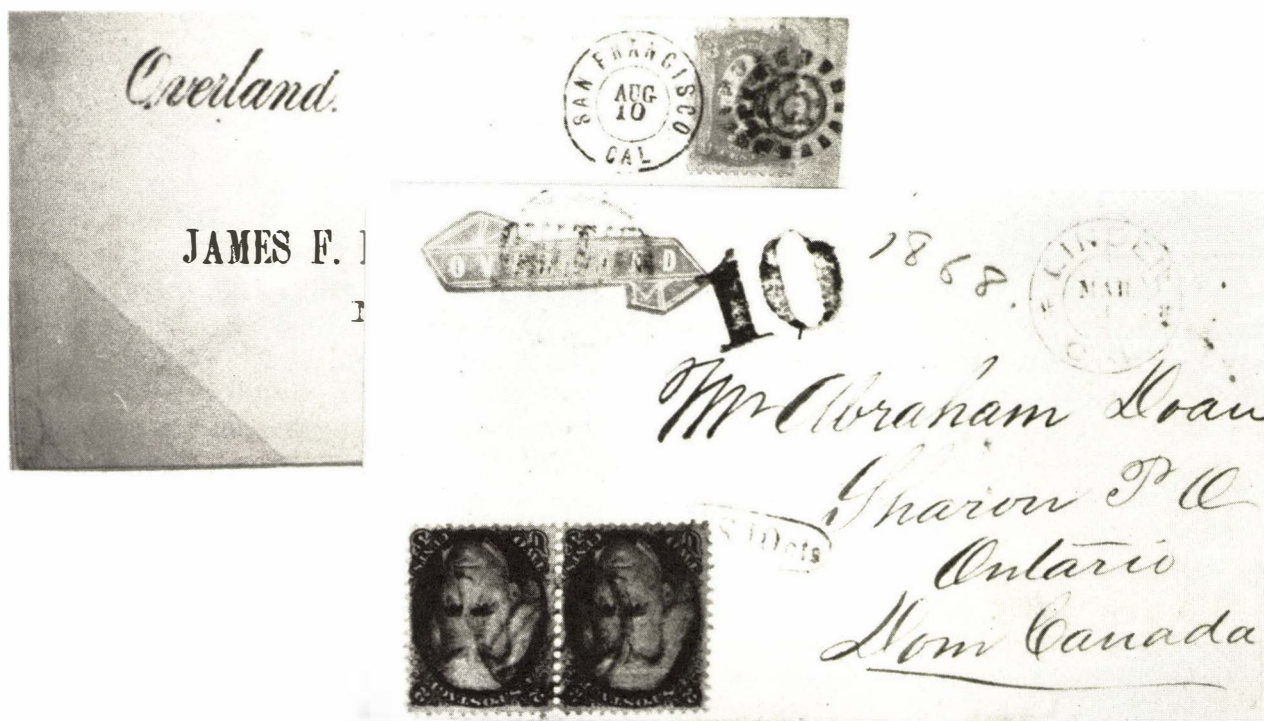 Overland.
SAN FRANCISCO
AUG
10
CAL
JAMES F.
OVERLAND
10
1868.
MAR
Mr Abraham Doan
Sharon P O
Ontario
Dom Canada